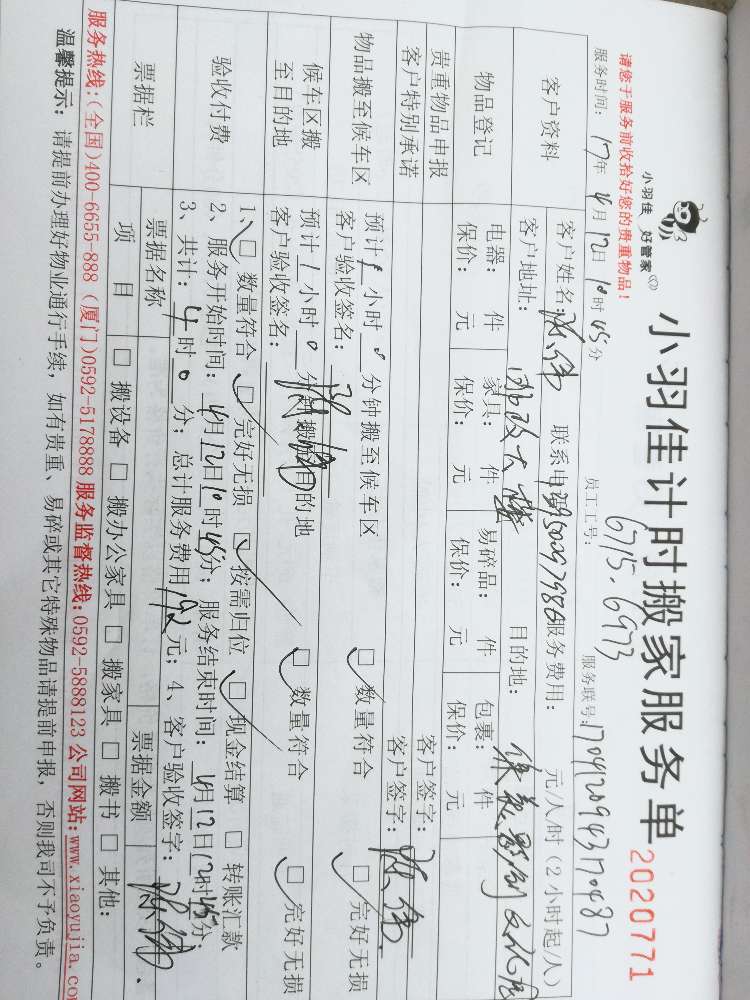 小羽佳 好管家
小羽佳计时搬家服务单 2020771
请您于服务前收拾好您的贵重物品!
员工工号: 6715.6973
服务时间: 17年 4月 12日 10时 45分 服务联号:
客户资料
客户姓名: 联系电话: 服务费用: 元/人/时(2小时起/人)
客户地址: 目的地:
物品登记
电器: 件 家具: 件 易碎品: 件 包裹: 件
保价: 元 保价: 元 保价: 元 保价: 元
贵重物品申报 客户签字:
客户特别承诺 客户签字:
物品搬至候车区
预计1小时0分钟搬至候车区 □ 数量符合 □ 完好无损
客户验收签名:
候车区搬至目的地
预计1小时0分钟搬至目的地 □ 数量符合 □ 完好无损
客户验收签名:
验收付费
1、□ 数量符合 □ 完好无损 □ 按需归位 □ 现金结算 □ 转账汇款
2、服务开始时间: 4月12日10时45分; 服务结束时间: 4月12日12时45分
3、共计: 4时0分; 总计服务费用192元; 4、客户验收签字:
票据栏
票据名称 票据金额
项 目 □ 搬设备 □ 搬办公家具 □ 搬家具 □ 搬书 □ 其他:
服务热线:(全国)400-6655-888 (厦门)0592-5178888 服务监督热线:0592-5888123 公司网站:www.xiaoyujia.com
温馨提示: 请提前办理好物业通行手续, 如有贵重、易碎或其它特殊物品请提前申报, 否则我司不予负责。